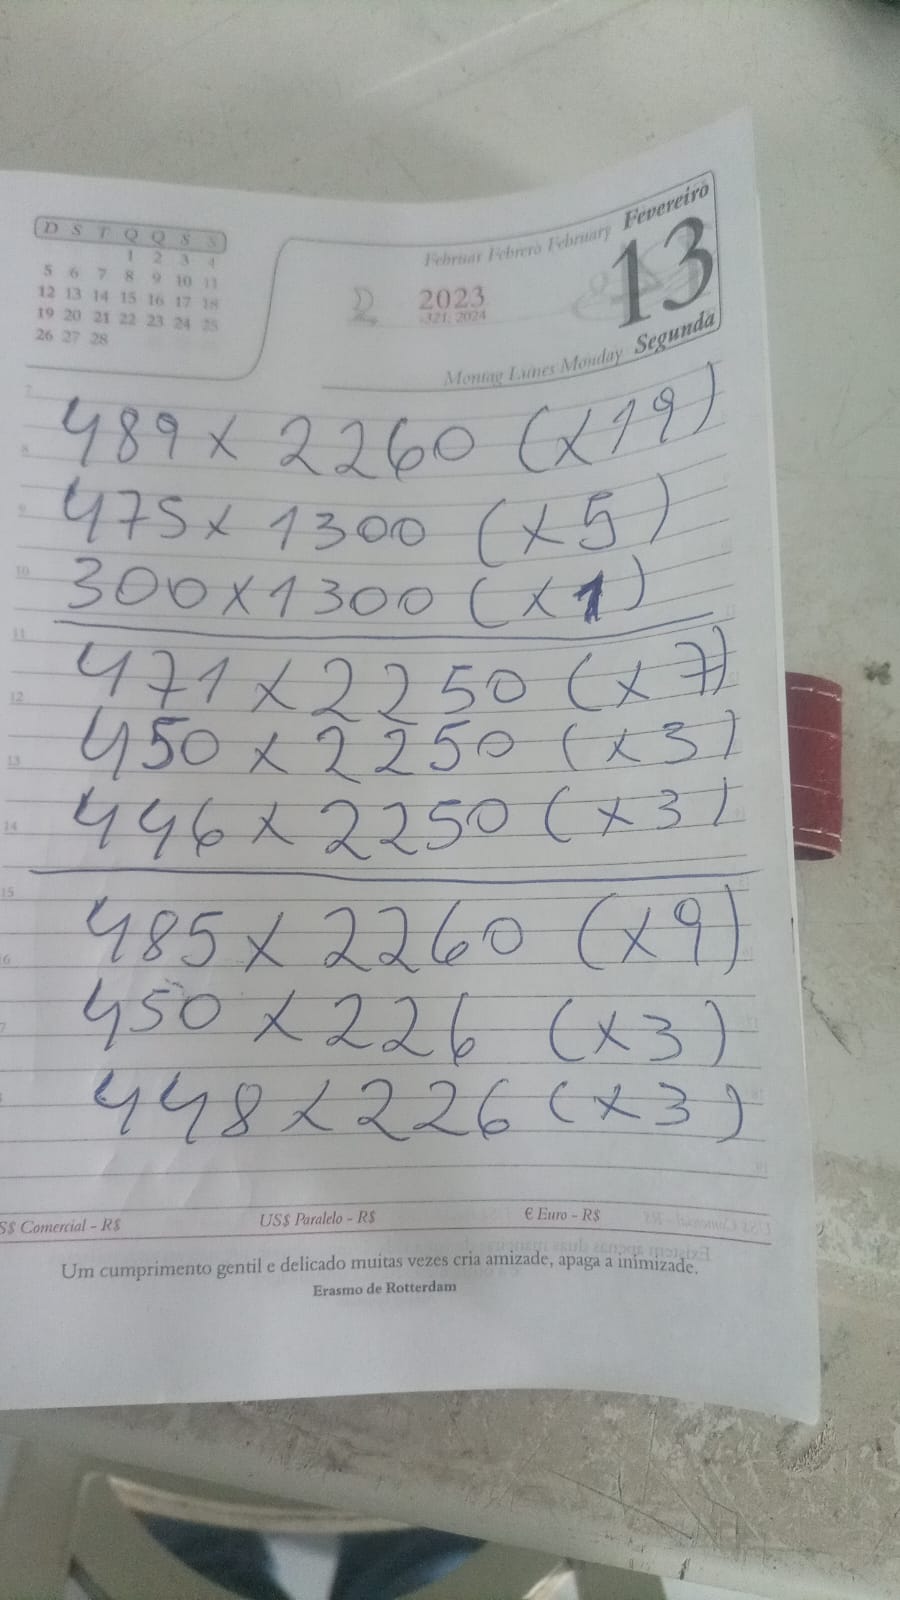 D S T Q Q S S
1 2 3 4
5 6 7 8 9 10 11
12 13 14 15 16 17 18
19 20 21 22 23 24 25
26 27 28
Februar Febrero February Fevereiro
13
2023
-321, 2024
Montag Lunes Monday Segunda
7
489 x 2260 (x19)
8
475 x 1300 (x5)
9
300 x 1300 (x1)
10
11
471 x 2250 (x7)
12
450 x 2250 (x3)
13
446 x 2250 (x3)
14
15
485 x 2260 (x9)
6
450 x 226 (x3)
7
448 x 226 (x3)
S$ Comercial - R$ US$ Paralelo - R$ € Euro - R$
Um cumprimento gentil e delicado muitas vezes cria amizade, apaga a inimizade.
Erasmo de Rotterdam